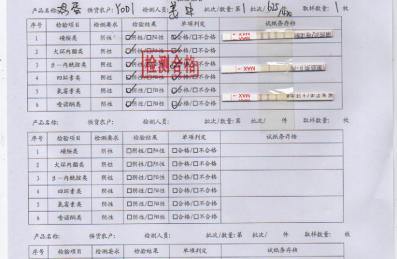 产品名称: 鸡蛋 供货农户: YODI 检测人员: 批次/数量: 批次/ 625 取样数量: 枚
序号 检验项目 检测要求 检验结果 单项判定 试纸条存档
1 磺胺类 阴性 ☑阴性/□阳性 ☑合格/□不合格
2 大环内酯类 阴性 ☑阴性/□阳性 ☑合格/□不合格
3 β-内酰胺类 阴性 ☑阴性/□阳性 ☑合格/□不合格
4 四环素类 阴性 ☑阴性/□阳性 ☑合格/□不合格
5 氯霉素类 阴性 ☑阴性/□阳性 ☑合格/□不合格
6 喹诺酮类 阴性 ☑阴性/□阳性 ☑合格/□不合格
检测合格
MAX
MAX
MAX
产品名称: 供货农户: 检测人员: 批次/数量: 第 批次/ 件 取样数量: 枚
序号 检验项目 检测要求 检验结果 单项判定 试纸条存档
1 磺胺类 阴性 □阴性/□阳性 □合格/□不合格
2 大环内酯类 阴性 □阴性/□阳性 □合格/□不合格
3 β-内酰胺类 阴性 □阴性/□阳性 □合格/□不合格
4 四环素类 阴性 □阴性/□阳性 □合格/□不合格
5 氯霉素类 阴性 □阴性/□阳性 □合格/□不合格
6 喹诺酮类 阴性 □阴性/□阳性 □合格/□不合格
产品名称: 供货农户: 检测人员: 批次/数量: 第 批次/ 件 取样数量: 枚
序号 检验项目 检测要求 检验结果 单项判定 试纸条存档